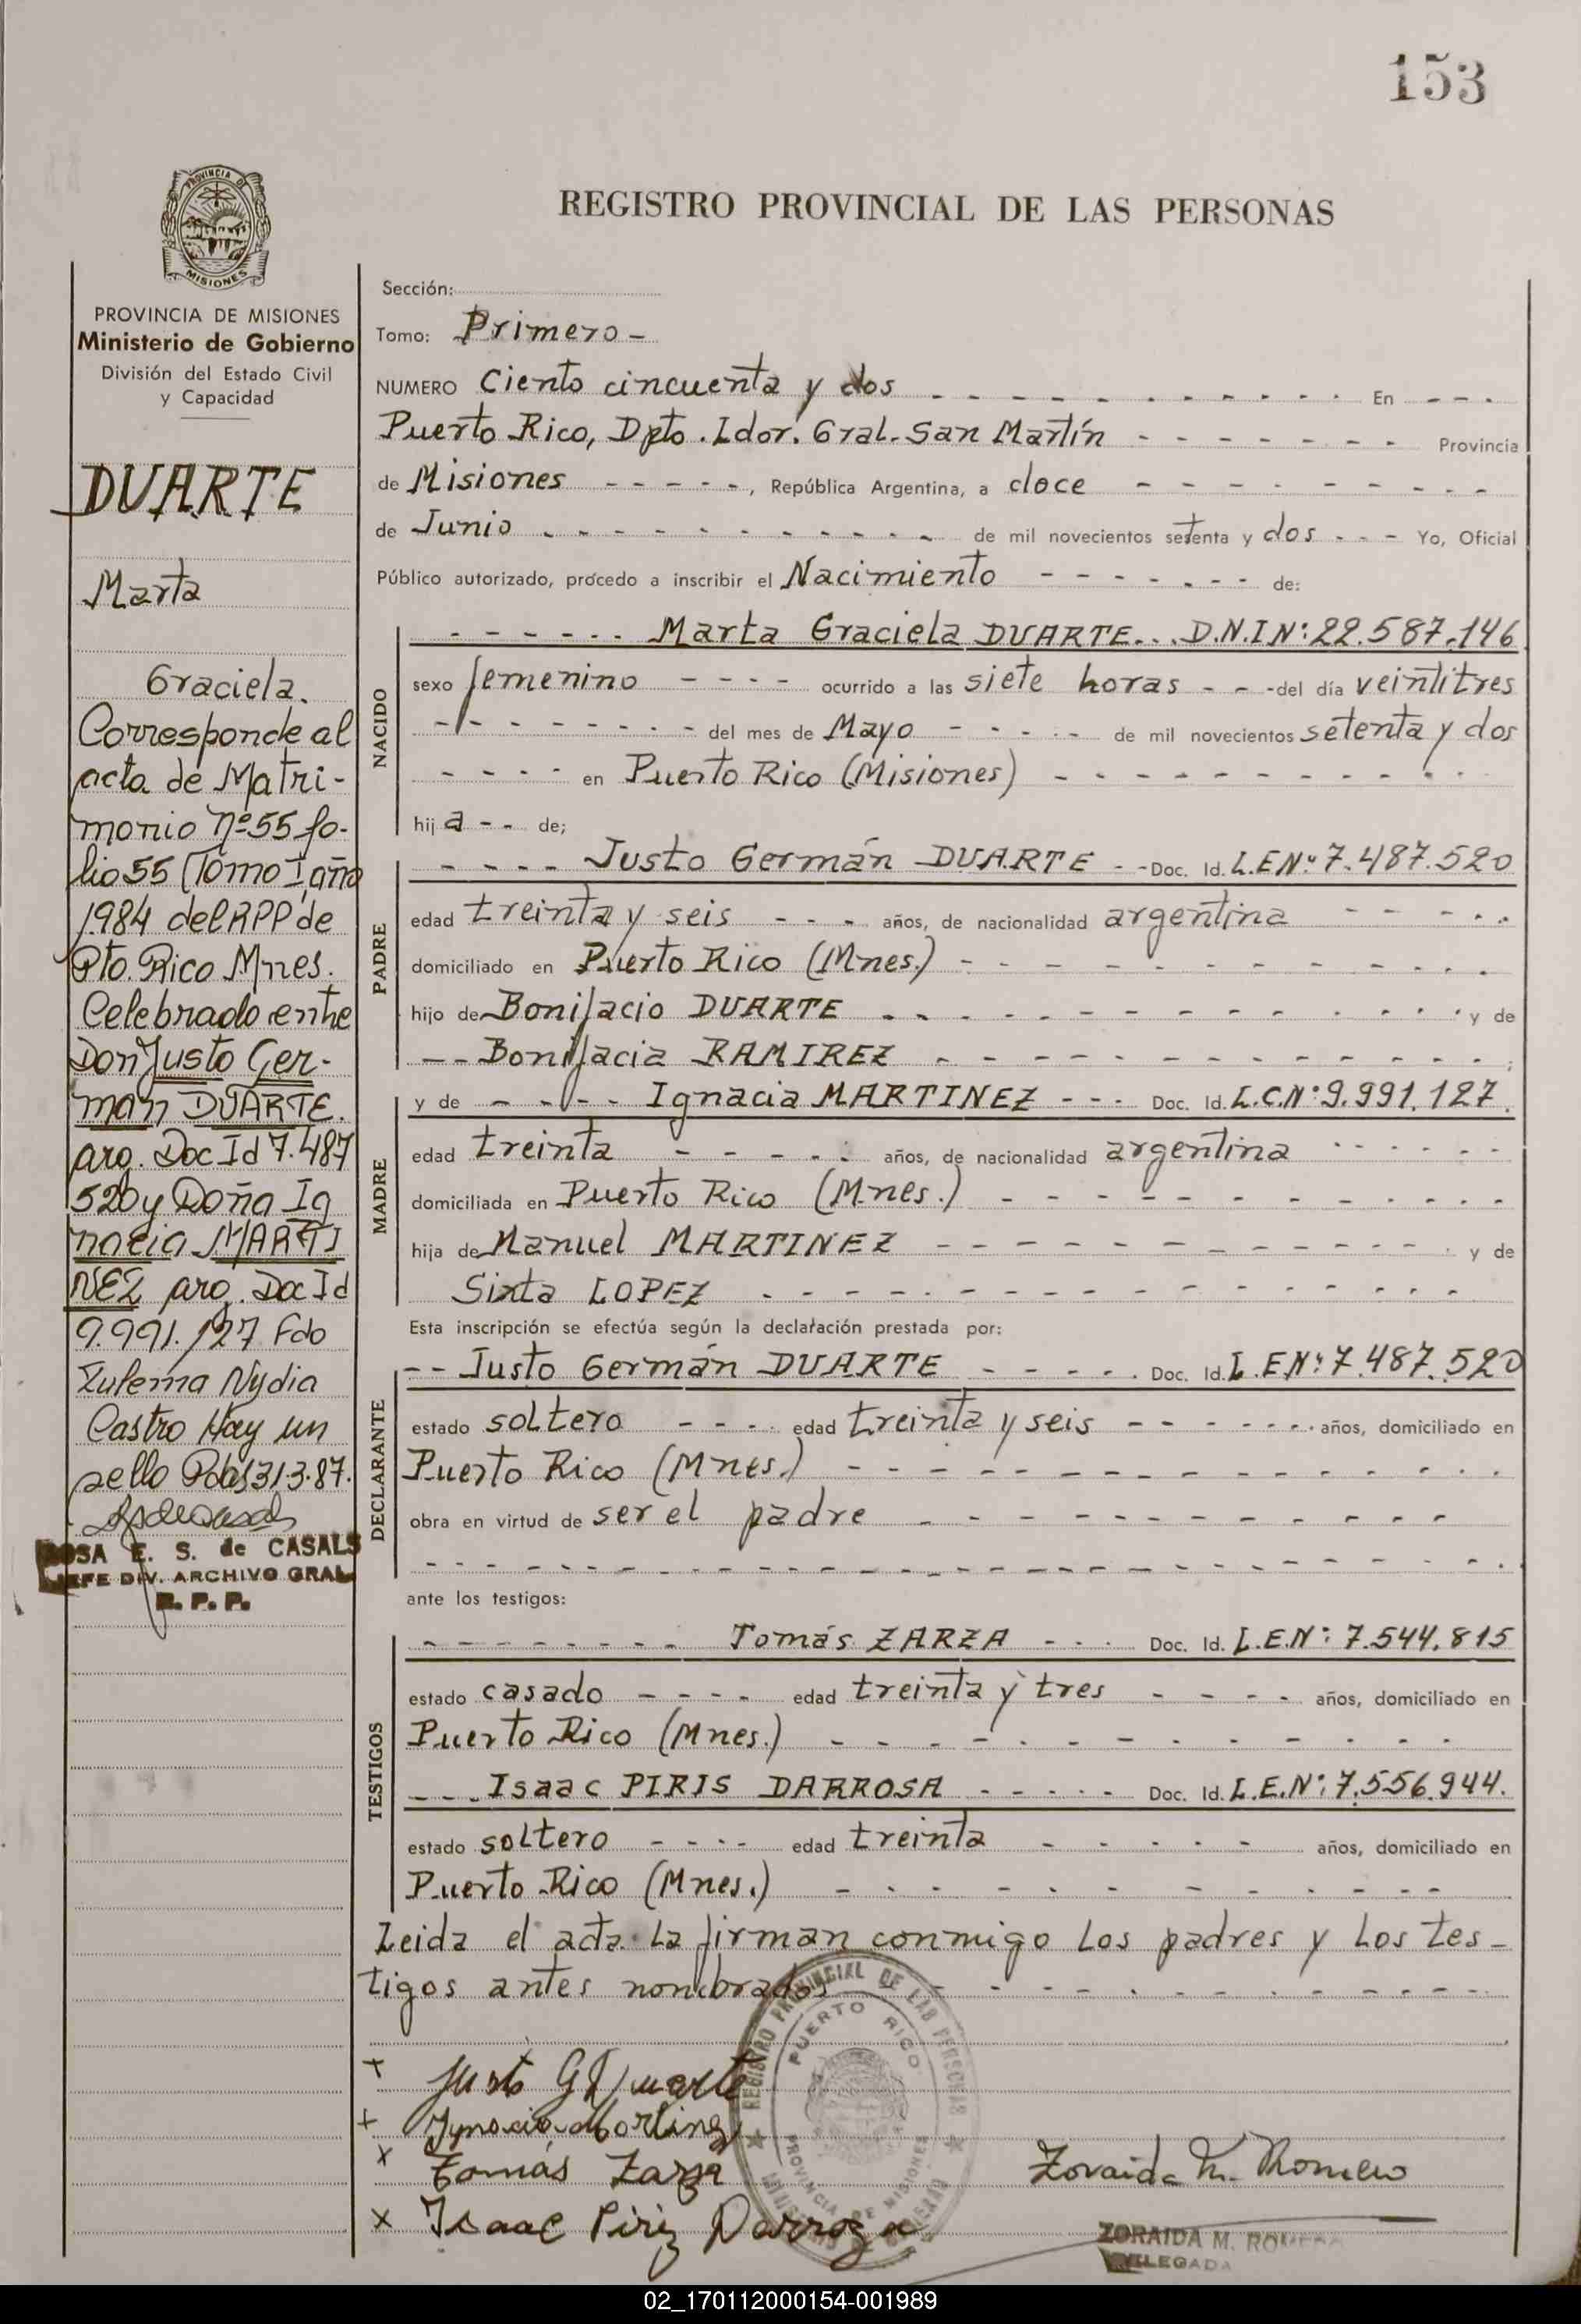 153
PROVINCIA DE
MISIONES
REGISTRO PROVINCIAL DE LAS PERSONAS
PROVINCIA DE MISIONES
Ministerio de Gobierno
División del Estado Civil
y Capacidad
DUARTE
Marta
Graciela.
Corresponde al
acta de Matri-
monio Nº 55 fo-
lio 55 (Tomo I año
1984 del RPP de
Pto. Rico Mnes.
Celebrado entre
Don Justo Ger-
man DUARTE.
arg. Doc Id 7.487
520 y Doña Ig
nacia MARTI
NEZ arg. Doc Id
9.991.127 Fdo
Zulema Nydia
Castro Hay un
sello Pdas 31.3.87.
ROSA E. S. de CASALS
JEFE DIV. ARCHIVO GRAL
R. P. P.
Sección:
Tomo: Primero -
NUMERO Ciento cincuenta y dos - - - - - - - - - - En - - -
Puerto Rico, Dpto. Ldor. Gral. San Martín - - - - - - - Provincia
de Misiones - - - - -, República Argentina, a doce - - - - - - - - -
de Junio - - - - - - - - - - - de mil novecientos setenta y dos - - - Yo, Oficial
Público autorizado, procedo a inscribir el Nacimiento - - - - - - - de:
NACIDO
- - - - - - Marta Graciela DUARTE... D.N.I Nº: 22.587.146
sexo femenino - - - - ocurrido a las siete horas - - - del día veintitres
- - - - - - - - - del mes de Mayo - - - - - de mil novecientos setenta y dos
- - - - en Puerto Rico (Misiones) - - - - - - - - - - -
hij a - - de;
PADRE
- - - - Justo Germán DUARTE - - Doc. Id. L.E Nº: 7.487.520
edad treinta y seis - - - años, de nacionalidad argentina - - - - -
domiciliado en Puerto Rico (Mnes.) - - - - - - - - - - - -
hijo de Bonifacio DUARTE - - - - - - - - - - - - - y de
- - Bonifacia RAMIREZ - - - - - - - - - - - - - - ;
MADRE
y de - - - - Ignacia MARTINEZ - - - Doc. Id. L.C.Nº: 9.991.127.
edad treinta - - - - - - años, de nacionalidad argentina - - - - - -
domiciliada en Puerto Rico (Mnes.) - - - - - - - - - - - -
hija de Manuel MARTINEZ - - - - - - - - - - - - y de
Sixta LOPEZ - - - - - - - - - - - - - - - -
Esta inscripción se efectúa según la declaración prestada por:
DECLARANTE
- - Justo Germán DUARTE - - - - - Doc. Id. L.E Nº: 7.487.520
estado soltero - - - - edad treinta y seis - - - - - - - años, domiciliado en
Puerto Rico (Mnes.) - - - - - - - - - - - - - - - -
obra en virtud de ser el padre - - - - - - - - - - - - -
- - - - - - - - - - - - - - - - - - - - - - - -
ante los testigos:
TESTIGOS
- - - - - - - - Tomás ZARZA - - - Doc. Id. L.E.Nº: 7.544.815
estado casado - - - - edad treinta y tres - - - - años, domiciliado en
Puerto Rico (Mnes.) - - - - - - - - - - - - -
- - - Isaac PIRIS DARROSA - - - - - Doc. Id. L.E.Nº: 7.556.944.
estado soltero - - - - edad treinta - - - - - años, domiciliado en
Puerto Rico (Mnes.) - - - - - - - - - - - - -
Leida el acta. La firman conmigo los padres y los tes-
tigos antes nombrados - - - - - - - - - - - -
REGISTRO PROVINCIAL DE LAS PERSONAS
PUERTO RICO
PROVINCIA DE MISIONES
x Justo G Duarte
x Ygnacia Martinez
x Tomás Zarza
x Isaac Piriz Darroza
Zoraida M. Romero
ZORAIDA M. ROMERO
DELEGADA
02_170112000154-001989